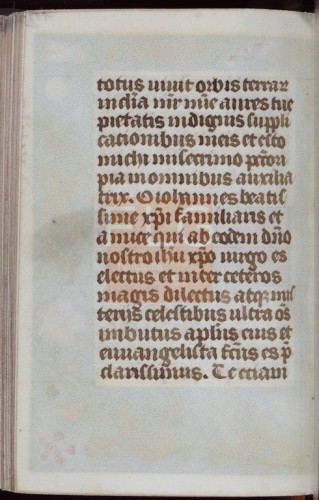 totus viuit orbis terrar
inclina michi mie aures tue
pietatis indignis suppli
cationibus meis et esto
michi miserrimo pctori
pia in omnibus auxilia
trix. O iohannes beatis
sime xpi familiaris et
amice qui ab eodem dno
nostro ihu xpo uirgo es
electus et inter ceteros
magis dilectus atqz mis
terijs celestibus ultra os
imbutus aplus eius et
euuangelista fcus es p
clarissimus. Te etiam